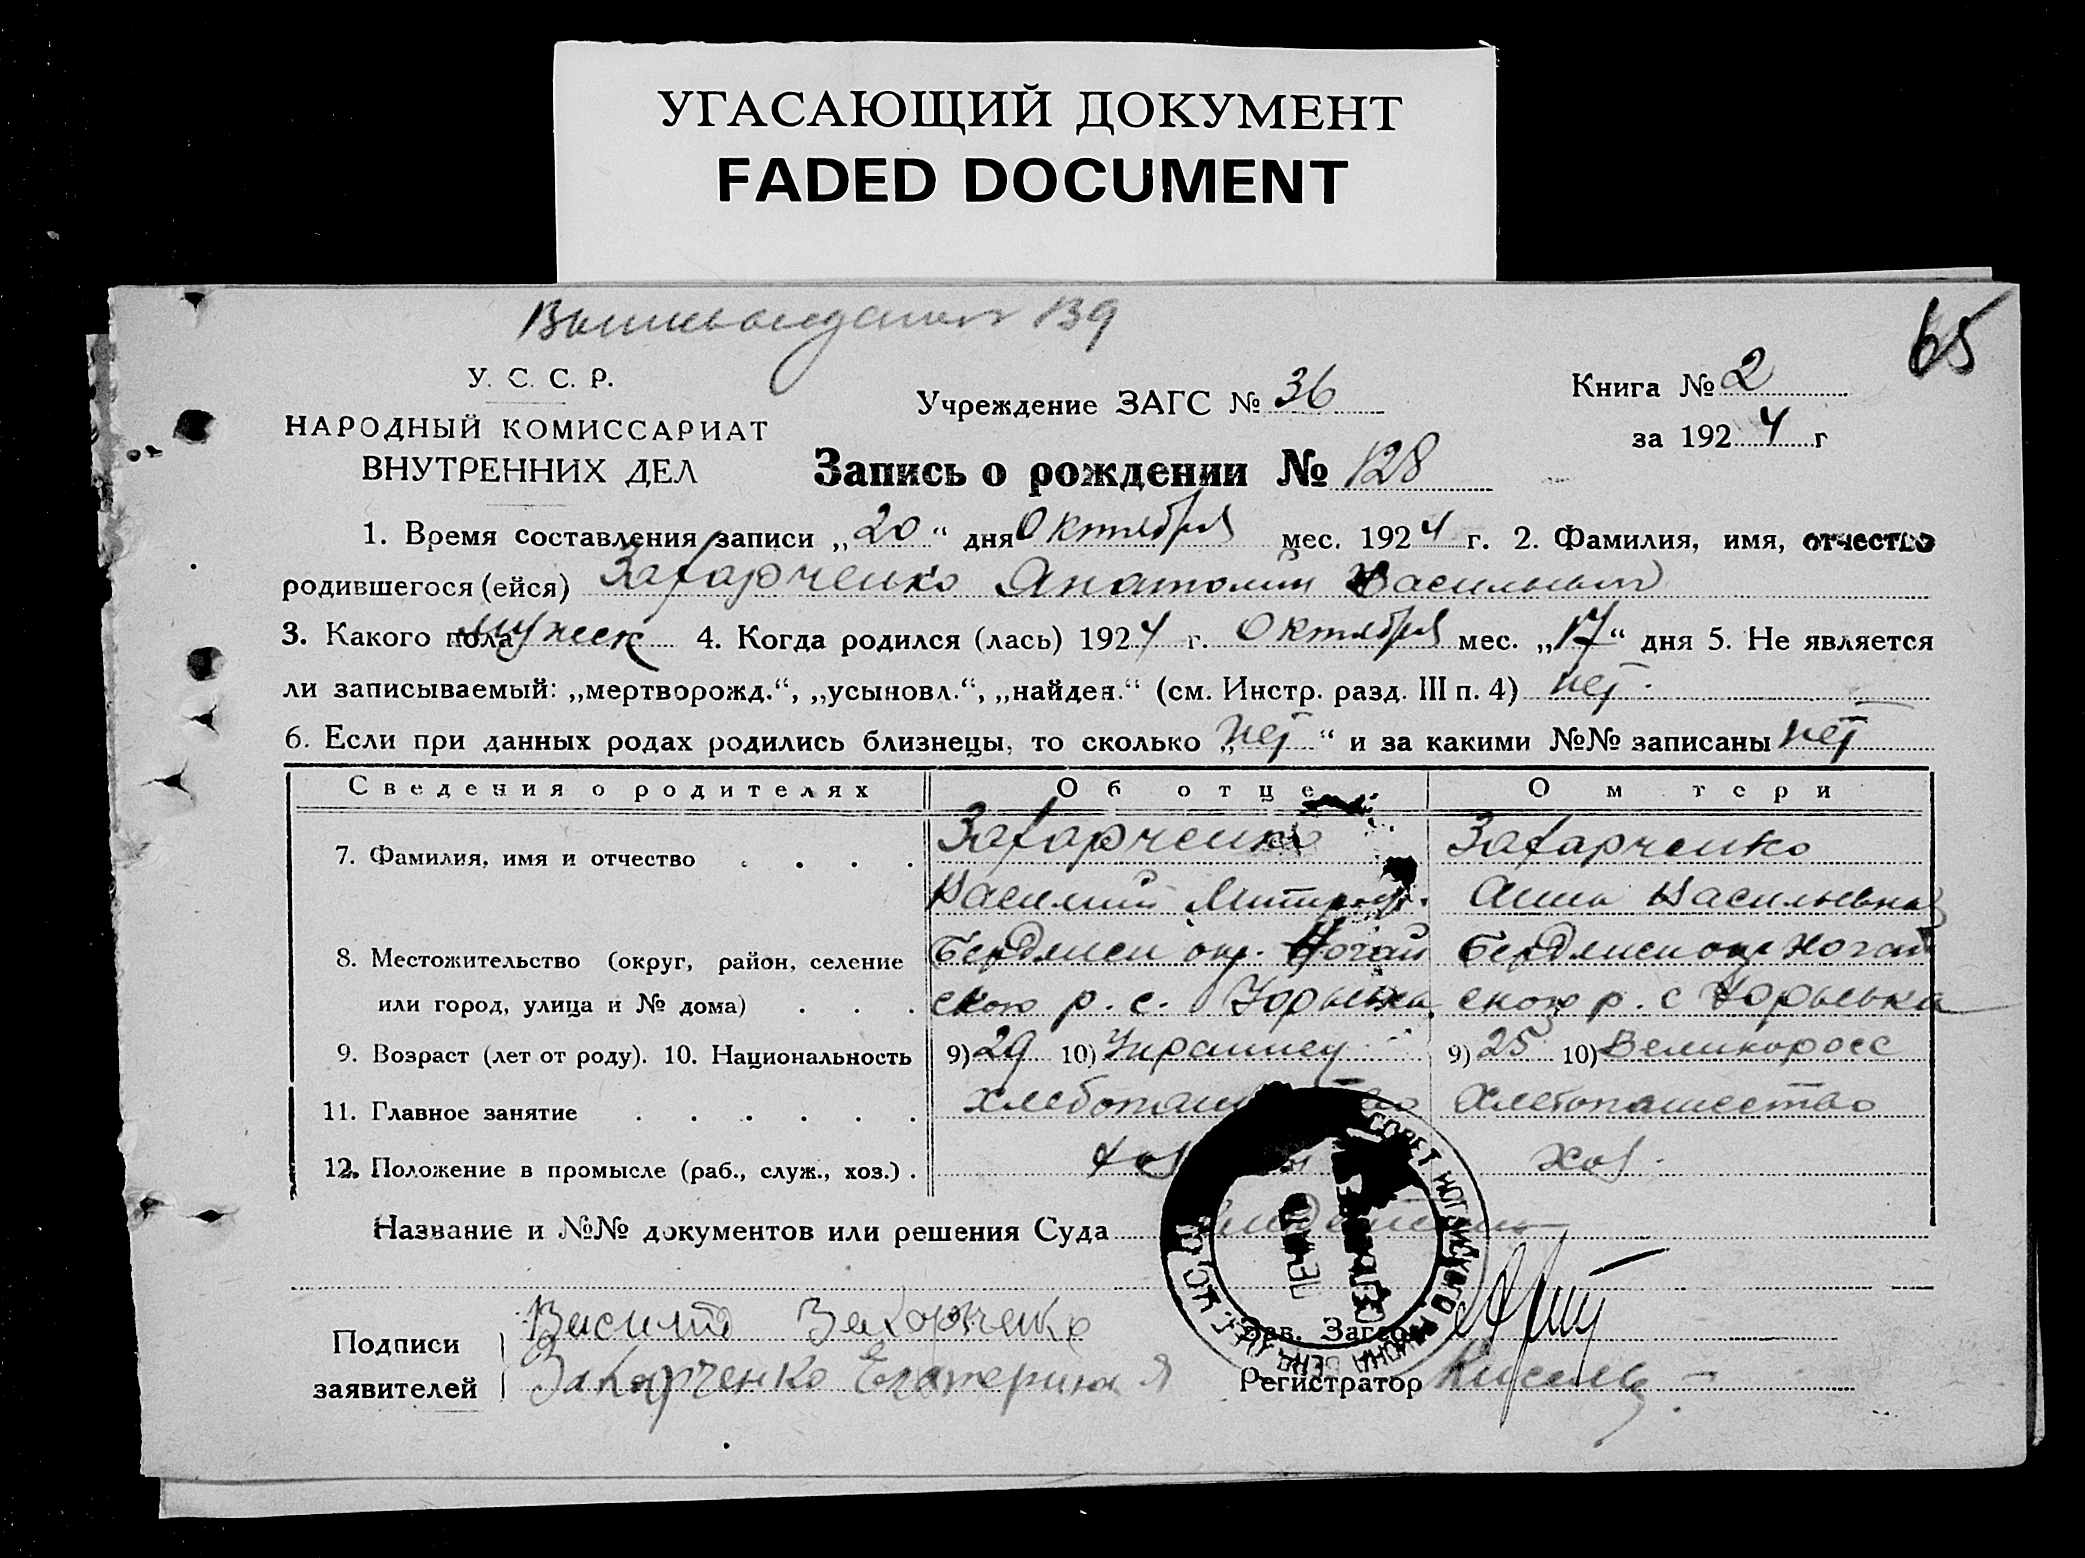 УГАСАЮЩИЙ ДОКУМЕНТ
FADED DOCUMENT
139
65
У. С. С. Р.
НАРОДНЫЙ КОМИССАРИАТ
ВНУТРЕННИХ ДЕЛ
Учреждение ЗАГС № 36
Книга № 2
за 1924 г
Запись о рождении № 128
1. Время составления записи „20“ дня Октября мес. 1924 г. 2. Фамилия, имя, отчество
родившегося (ейся) Захарченко Анатолий Васильев
3. Какого пола мужеск 4. Когда родился (лась) 1924 г. Октября мес. „17“ дня 5. Не является
ли записываемый: „мертворожд.“, „усыновл.“, „найден.“ (см. Инстр. разд. III п. 4) нет
6. Если при данных родах родились близнецы, то сколько „нет“ и за какими №№ записаны нет
Сведения о родителях Об отце О м тери
7. Фамилия, имя и отчество . . . . Захарченко Захарченко
Василий Митроф. Анна Васильевна
8. Местожительство (округ, район, селение Бердянск окр. Ногай Бердянск окр Ногай
или город, улица и № дома) . . . ского р. с. ского р. с
9. Возраст (лет от роду). 10. Национальность 9) 29 10) Украинец 9) 25 10) Великоросс
11. Главное занятие . . . . . . Хлебопашество
12. Положение в промысле (раб., служ., хоз.) . хоз хоз.
Название и №№ документов или решения Суда
СОВЕТ НОГАЙСКОГО РАЙОНА
Подписи
заявителей
Василий Захарченко
Захарченко Екатерина
Зав. Загсом
Регистратор